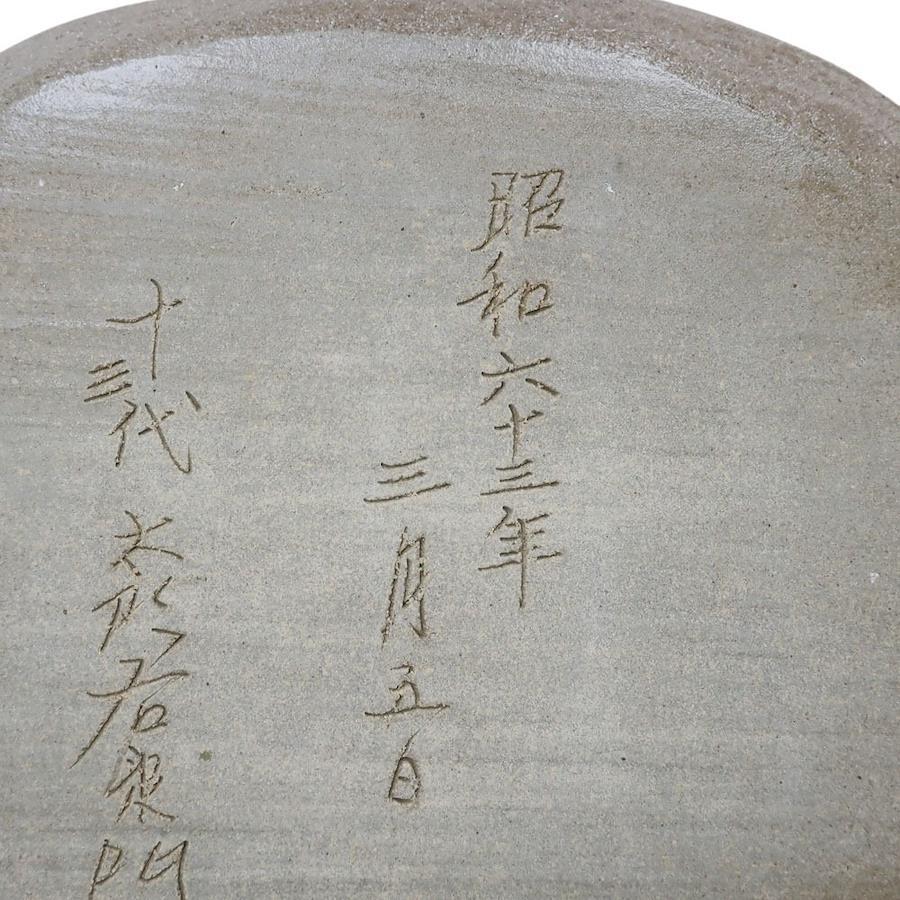 昭和六十三年
三月五日
十三代 太郎右衛門